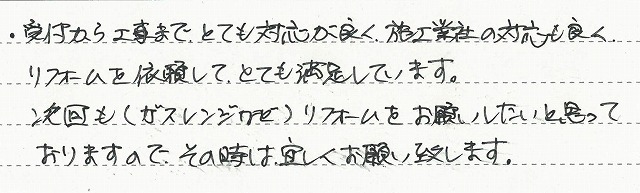 ・受付から工事まで、とても対応が良く、施工業社の対応も良く、
リフォームを依頼して、とても満足しています。
次回も(ガスレンジなど)リフォームをお願いしたいと思って
おりますので、その時は、宜しくお願い致します。